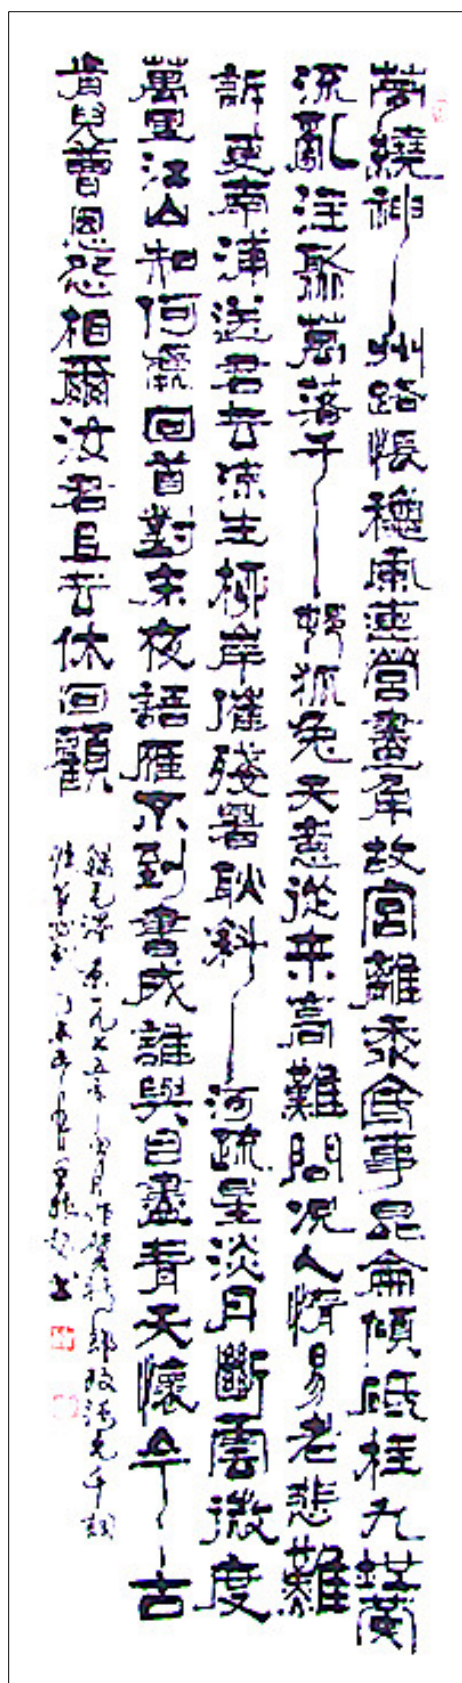 夢繞神州路悵穐風連營畫角故宮離黍底事昆侖傾砥柱九地黄
流亂注聚萬落千邨狐兔天意從來高難問况人情易老悲難
訴更南浦送君去涼生柳岸催殘暑耿斜河疏星淡月斷雲微度
萬里江山知何處回首對床夜語雁不到書成誰與目盡青天懷今古
肯兒曹恩怨相爾汝君且去休回顧
東一九七五年四月作賀新郎改張元干詞